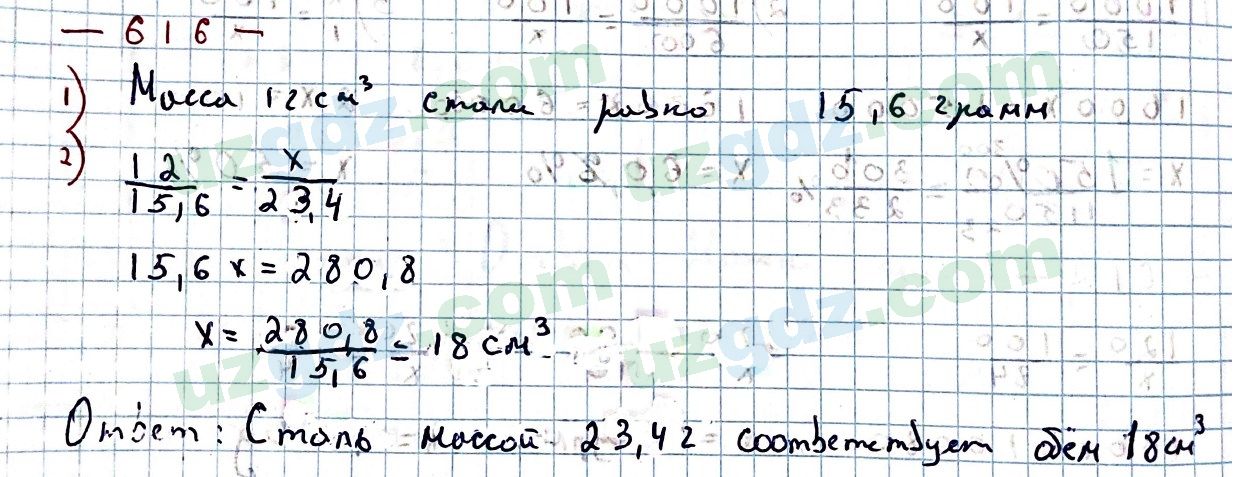 — 616 —
1) Масса 12 см³ стали равно 15,6 грамм
2) 12/15,6 = x/23,4
15,6 x = 280,8
x = 280,8/15,6 = 18 см³
Ответ: Сталь массой 23,4 г соответствует обём 18 см³
uzgdz.com
uzgdz.com
uzgdz.com
uzgdz.com